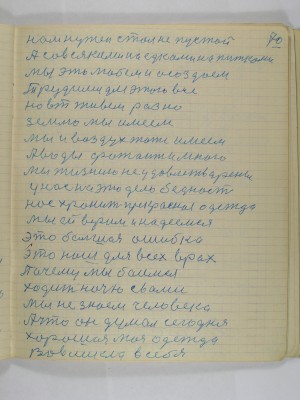 40
нам нужен стол не пустой
А со всякими наедками и питками
мы это любем и создаем
Трудимся для этого все
но вт живем разно
землю мы имеем
мы и воздух тоже имеем
А воды много
мы жизнию не удовлетварены
у нас на это дело бедност
нас хронит прекрасная одежда
мы ей верим и надеемся
это большая ошибка
Это наш для всех врах
Почему мы боимся
ходит ночю с вами
мы не знаем человека
А что он думал сегодня
хорошая моя одежда
в себя